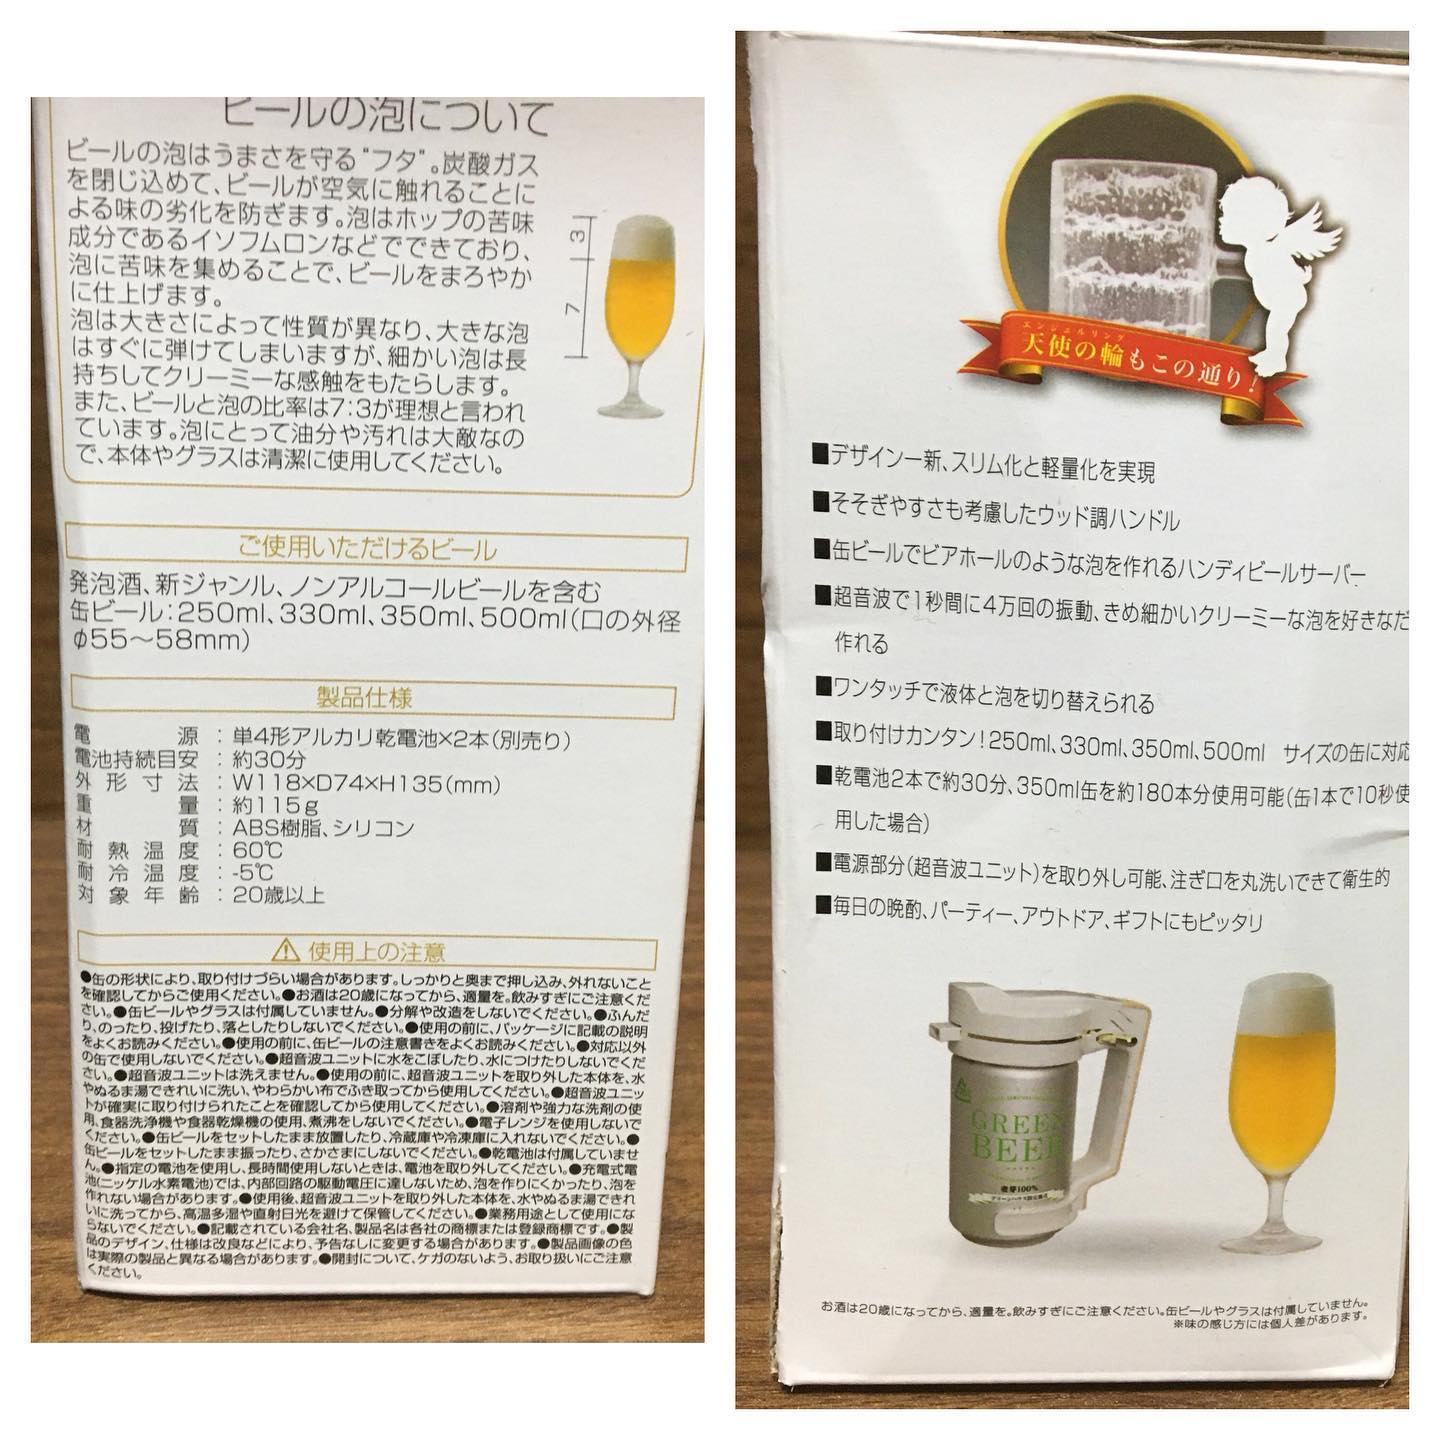 ビールの泡について
ビールの泡はうまさを守る"フタ"。炭酸ガス
を閉じ込めて、ビールが空気に触れることに
よる味の劣化を防ぎます。泡はホップの苦味
成分であるイソフムロンなどでできており、
泡に苦味を集めることで、ビールをまろやか
に仕上げます。
泡は大きさによって性質が異なり、大きな泡
はすぐに弾けてしまいますが、細かい泡は長
持ちしてクリーミーな感触をもたらします。
また、ビールと泡の比率は7:3が理想と言われ
ています。泡にとって油分や汚れは大敵なの
で、本体やグラスは清潔に使用してください。
3
7
ご使用いただけるビール
発泡酒、新ジャンル、ノンアルコールビールを含む
缶ビール:250ml、330ml、350ml、500ml(口の外径
φ55〜58mm)
製品仕様
電源:単4形アルカリ乾電池×2本(別売り)
電池持続目安:約30分
外形寸法:W118×D74×H135(mm)
重量:約115g
材質:ABS樹脂、シリコン
耐熱温度:60℃
耐冷温度:-5℃
対象年齢:20歳以上
⚠使用上の注意
●缶の形状により、取り付けづらい場合があります。しっかりと奥まで押し込み、外れないこと
を確認してからご使用ください。●お酒は20歳になってから、適量を。飲みすぎにご注意くだ
さい。●缶ビールやグラスは付属していません。●分解や改造をしないでください。●ふんだ
り、のったり、投げたり、落としたりしないでください。●使用の前に、パッケージに記載の説明
をよくお読みください。●使用の前に、缶ビールの注意書きをよくお読みください。●対応以外
の缶で使用しないでください。●超音波ユニットに水をこぼしたり、水につけたりしないでくだ
さい。●超音波ユニットは洗えません。●使用の前に、超音波ユニットを取り外した本体を、水
やぬるま湯できれいに洗い、やわらかい布でふき取ってから使用してください。●超音波ユニッ
トが確実に取り付けられたことを確認してから使用してください。●溶剤や強力な洗剤の使
用、食器洗浄機や食器乾燥機の使用、煮沸をしないでください。●電子レンジを使用しないで
ください。●缶ビールをセットしたまま放置したり、冷蔵庫や冷凍庫に入れないでください。●
缶ビールをセットしたまま振ったり、さかさまにしないでください。●乾電池は付属していませ
ん。●指定の電池を使用し、長時間使用しないときは、電池を取り外してください。●充電式電
池(ニッケル水素電池)では、内部回路の駆動電圧に達しないため、泡を作りにくかったり、泡を
作れない場合があります。●使用後、超音波ユニットを取り外した本体を、水やぬるま湯できれ
いに洗ってから、高温多湿や直射日光を避けて保管してください。●業務用途として使用にな
らないでください。●記載されている会社名、製品名は各社の商標または登録商標です。●製
品のデザイン、仕様は改良などにより、予告なしに変更する場合があります。●製品画像の色
は実際の製品と異なる場合があります。●開封について、ケガのないよう、お取り扱いにご注意
ください。
エンジェルリング
天使の輪もこの通り!
■デザイン一新、スリム化と軽量化を実現
■そそぎやすさも考慮したウッド調ハンドル
■缶ビールでビアホールのような泡を作れるハンディビールサーバー
■超音波で1秒間に4万回の振動、きめ細かいクリーミーな泡を好きなだ
作れる
■ワンタッチで液体と泡を切り替えられる
■取り付けカンタン!250ml、330ml、350ml、500ml サイズの缶に対応
■乾電池2本で約30分、350ml缶を約180本分使用可能(缶1本で10秒使
用した場合)
■電源部分(超音波ユニット)を取り外し可能、注ぎ口を丸洗いできて衛生的
■毎日の晩酌、パーティー、アウトドア、ギフトにもピッタリ
GREEN
BEER
麦芽100%
お酒は20歳になってから、適量を。飲みすぎにご注意ください。缶ビールやグラスは付属していません。
※味の感じ方には個人差があります。